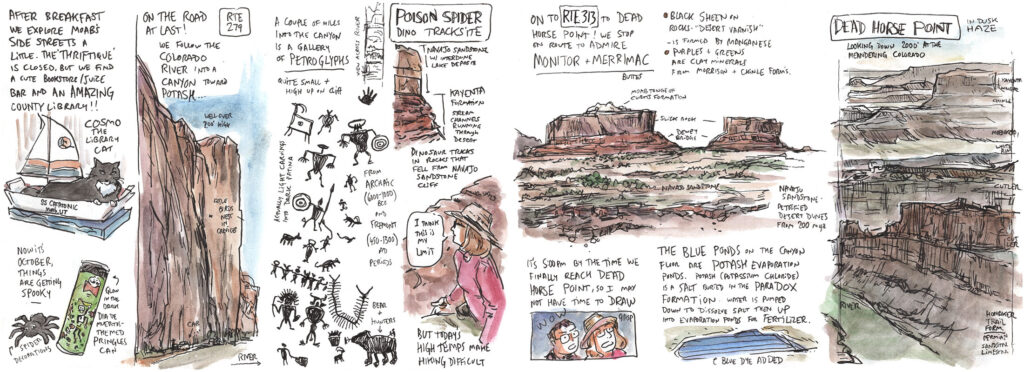 AFTER BREAKFAST
WE EXPLORE MOAB'S
SIDE STREETS A
LITTLE. THE "THRIFTIQUE"
IS CLOSED. BUT WE FIND
A CUTE BOOKSTORE/JUICE
BAR AND AN AMAZING
COUNTY LIBRARY!!
COSMO
THE
LIBRARY
CAT
SS CATATONIC
NOW ITS
OCTOBER,
THINGS
ARE GETTING
SPOOKY
SPIDER
DECORATIONS
GLOW
IN THE
DARK
DIA DE
MUERTOS
THEMED
PRINGLES
CAN
ON THE ROAD
AT LAST!
RTE
279
WE FOLLOW THE
COLORADO
RIVER INTO A
CANYON TOWARD
POTASH...
WELL OVER
200' HIGH
LITTLE
BIRDS
NEST
IN
CREVICES
CAR
RIVER
A COUPLE OF MILES
INTO THE CANYON
IS A GALLERY
OF PETROGLYPHS
QUITE SMALL +
HIGH UP ON CLIFF
LIGHT CARVINGS
INTO DARK PATINA
FROM
ARCHAIC
BCE
AND
FREMONT
(450-1300)
AD
PERIODS
BEAR
HUNTERS
POISON SPIDER
DINO TRACKSITE
NAVAJO SANDSTONE
W/ INTERDUNE
LAKE DEPOSITS
KAYENTA
FORMATION
STREAM
CHANNELS
RUNNING
THROUGH
DESERT
DINOSAUR TRACKS
IN ROCKS THAT
FELL FROM NAVAJO
SANDSTONE
CLIFF
I THINK
THIS IS
MY
LIMIT
BUT TODAYS
HIGH TEMPS MAKE
HIKING DIFFICULT
ON TO RTE 313 TO DEAD
HORSE POINT! WE STOP
EN ROUTE TO ADMIRE
MONITOR + MERRIMAC
BUTTES
• BLACK SHEEN ON
ROCKS - "DESERT VARNISH"
- IS FORMED BY MANGANESE
• PURPLES + GREENS
ARE CLAY MINERALS
FROM MORRISON + CHINLE FORMS.
MOAB TONGUE OF
CURTIS FORMATION
SLICK ROCK
DEWEY
BRIDGE
NAVAJO SANDSTONE
NAVAJO
SANDSTONE -
PETRIFIED
DESERT DUNES
FROM 200 mya
IT'S 5:00PM BY THE TIME WE
FINALLY REACH DEAD
HORSE POINT, SO I MAY
NOT HAVE TIME TO DRAW
WOW
GASP
THE BLUE PONDS ON THE CANYON
FLOOR ARE POTASH EVAPORATION
PONDS. POTASH (POTASSIUM CHLORIDE)
IS A SALT BURIED IN THE PARADOX
FORMATION. WATER IS PUMPED
DOWN TO DISSOLVE SALT THEN UP
INTO EVAPORATION PONDS FOR FERTILIZER.
BLUE DYE ADDED
DEAD HORSE POINT
IN DUSK
HAZE
LOOKING DOWN 2000' AT THE
MEANDERING COLORADO
KAYENTA
WINGATE
CHINLE
MOENKOPI
WHITE
RIM
CUTLER
RIVER
HONAKER
TRAIL
FORM.
SANDSTN
LIMESTN